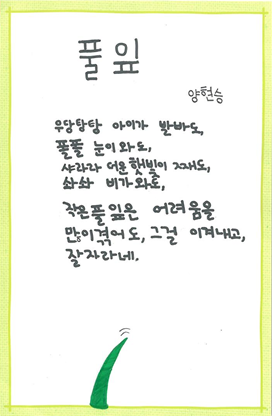 풀잎
양현승
우당탕탕 아이가 밟바도,
폴폴 눈이 와도,
샤라라 더운 햇빛이 쩨도,
솨솨 비가 와도,
작은 풀잎은 어려움을
많이 겪어도, 그걸 이겨내고,
잘 자라네.